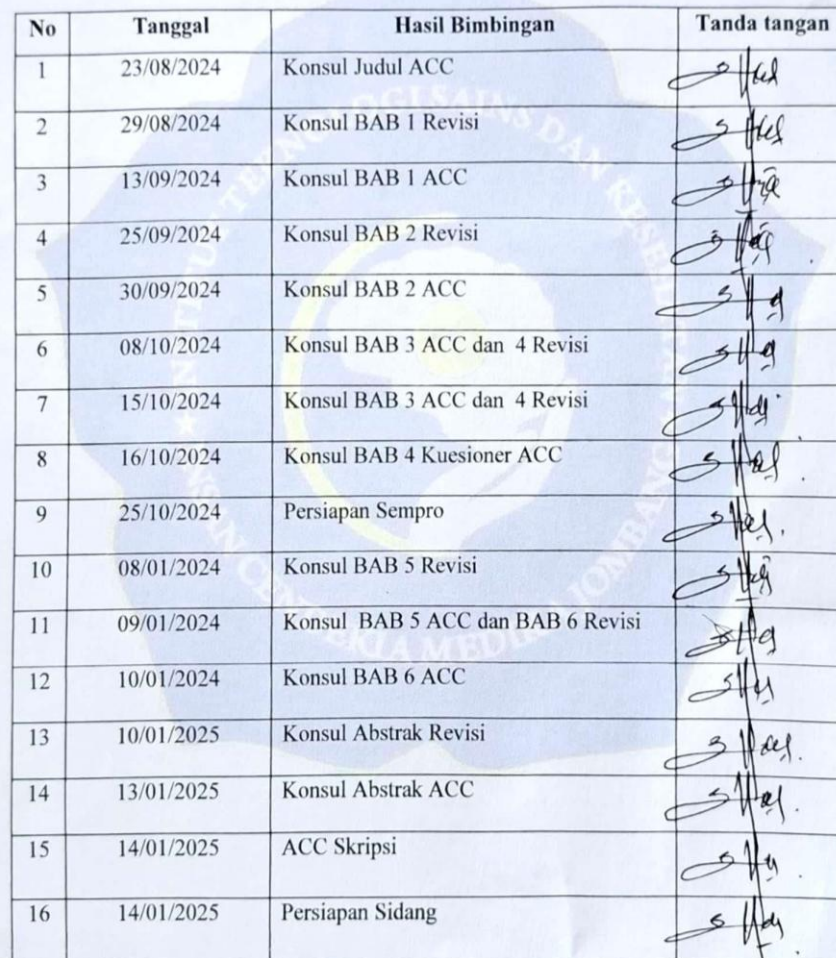 No Tanggal Hasil Bimbingan Tanda tangan
1 23/08/2024 Konsul Judul ACC
2 29/08/2024 Konsul BAB 1 Revisi
3 13/09/2024 Konsul BAB 1 ACC
4 25/09/2024 Konsul BAB 2 Revisi
5 30/09/2024 Konsul BAB 2 ACC
6 08/10/2024 Konsul BAB 3 ACC dan 4 Revisi
7 15/10/2024 Konsul BAB 3 ACC dan 4 Revisi
8 16/10/2024 Konsul BAB 4 Kuesioner ACC
9 25/10/2024 Persiapan Sempro
10 08/01/2024 Konsul BAB 5 Revisi
11 09/01/2024 Konsul BAB 5 ACC dan BAB 6 Revisi
12 10/01/2024 Konsul BAB 6 ACC
13 10/01/2025 Konsul Abstrak Revisi
14 13/01/2025 Konsul Abstrak ACC
15 14/01/2025 ACC Skripsi
16 14/01/2025 Persiapan Sidang